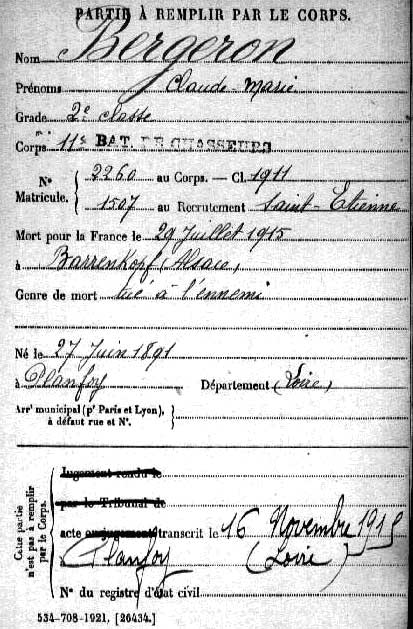 PARTIE À REMPLIR PAR LE CORPS.
Nom Bergeron
Prénoms Claude-Marie
Grade 2e classe
Corps 11e BAT. DE CHASSEURS
N° Matricule. { 2260 au Corps. — Cl. 1911
1507 au Recrutement Saint-Etienne
Mort pour la France le 29 Juillet 1915
à Barrenkopf (Alsace)
Genre de mort tué à l'ennemi
Né le 27 Juin 1891
à Planfoy Département (Loire)
Arrt municipal (pr Paris et Lyon), à défaut rue et N°. }
Cette partie n'est pas à remplir par le Corps.
Jugement rendu le
par le Tribunal de
acte ou jugement transcrit le 16 Novembre 1915
à Planfoy (Loire)
N° du registre d'état civil
534-708-1921. [26434.]